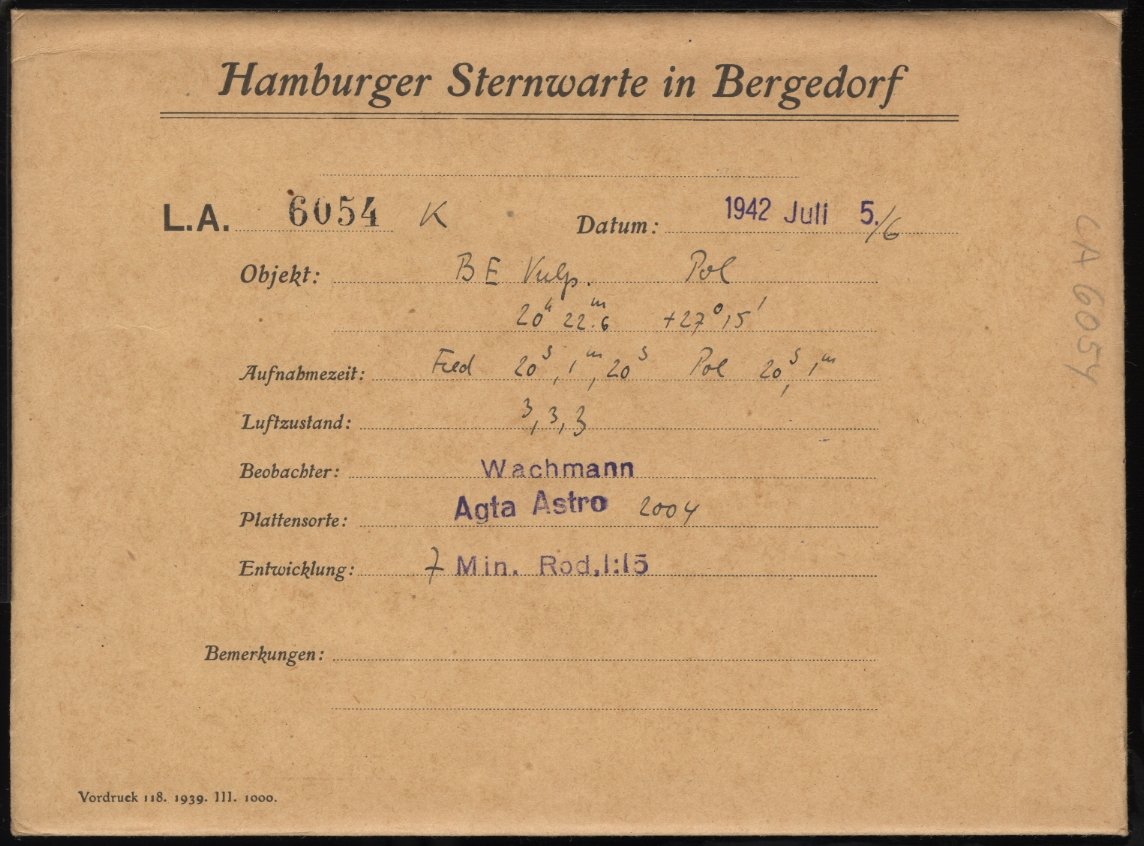 Hamburger Sternwarte in Bergedorf
L.A. 6054 K Datum: 1942 Juli 5./6
Objekt: BE Vulp. Pol
20ʰ 22ᵐ.6 +27° 15'
Aufnahmezeit: Feld 20ˢ, 1ᵐ, 20ˢ Pol 20ˢ, 1ᵐ
Luftzustand: 3, 3, 3
Beobachter: Wachmann
Plattensorte: Agfa Astro 2004
Entwicklung: 7 Min. Rod, 1:15
Bemerkungen:
Vordruck 118. 1939. III. 1000.
LA 6054